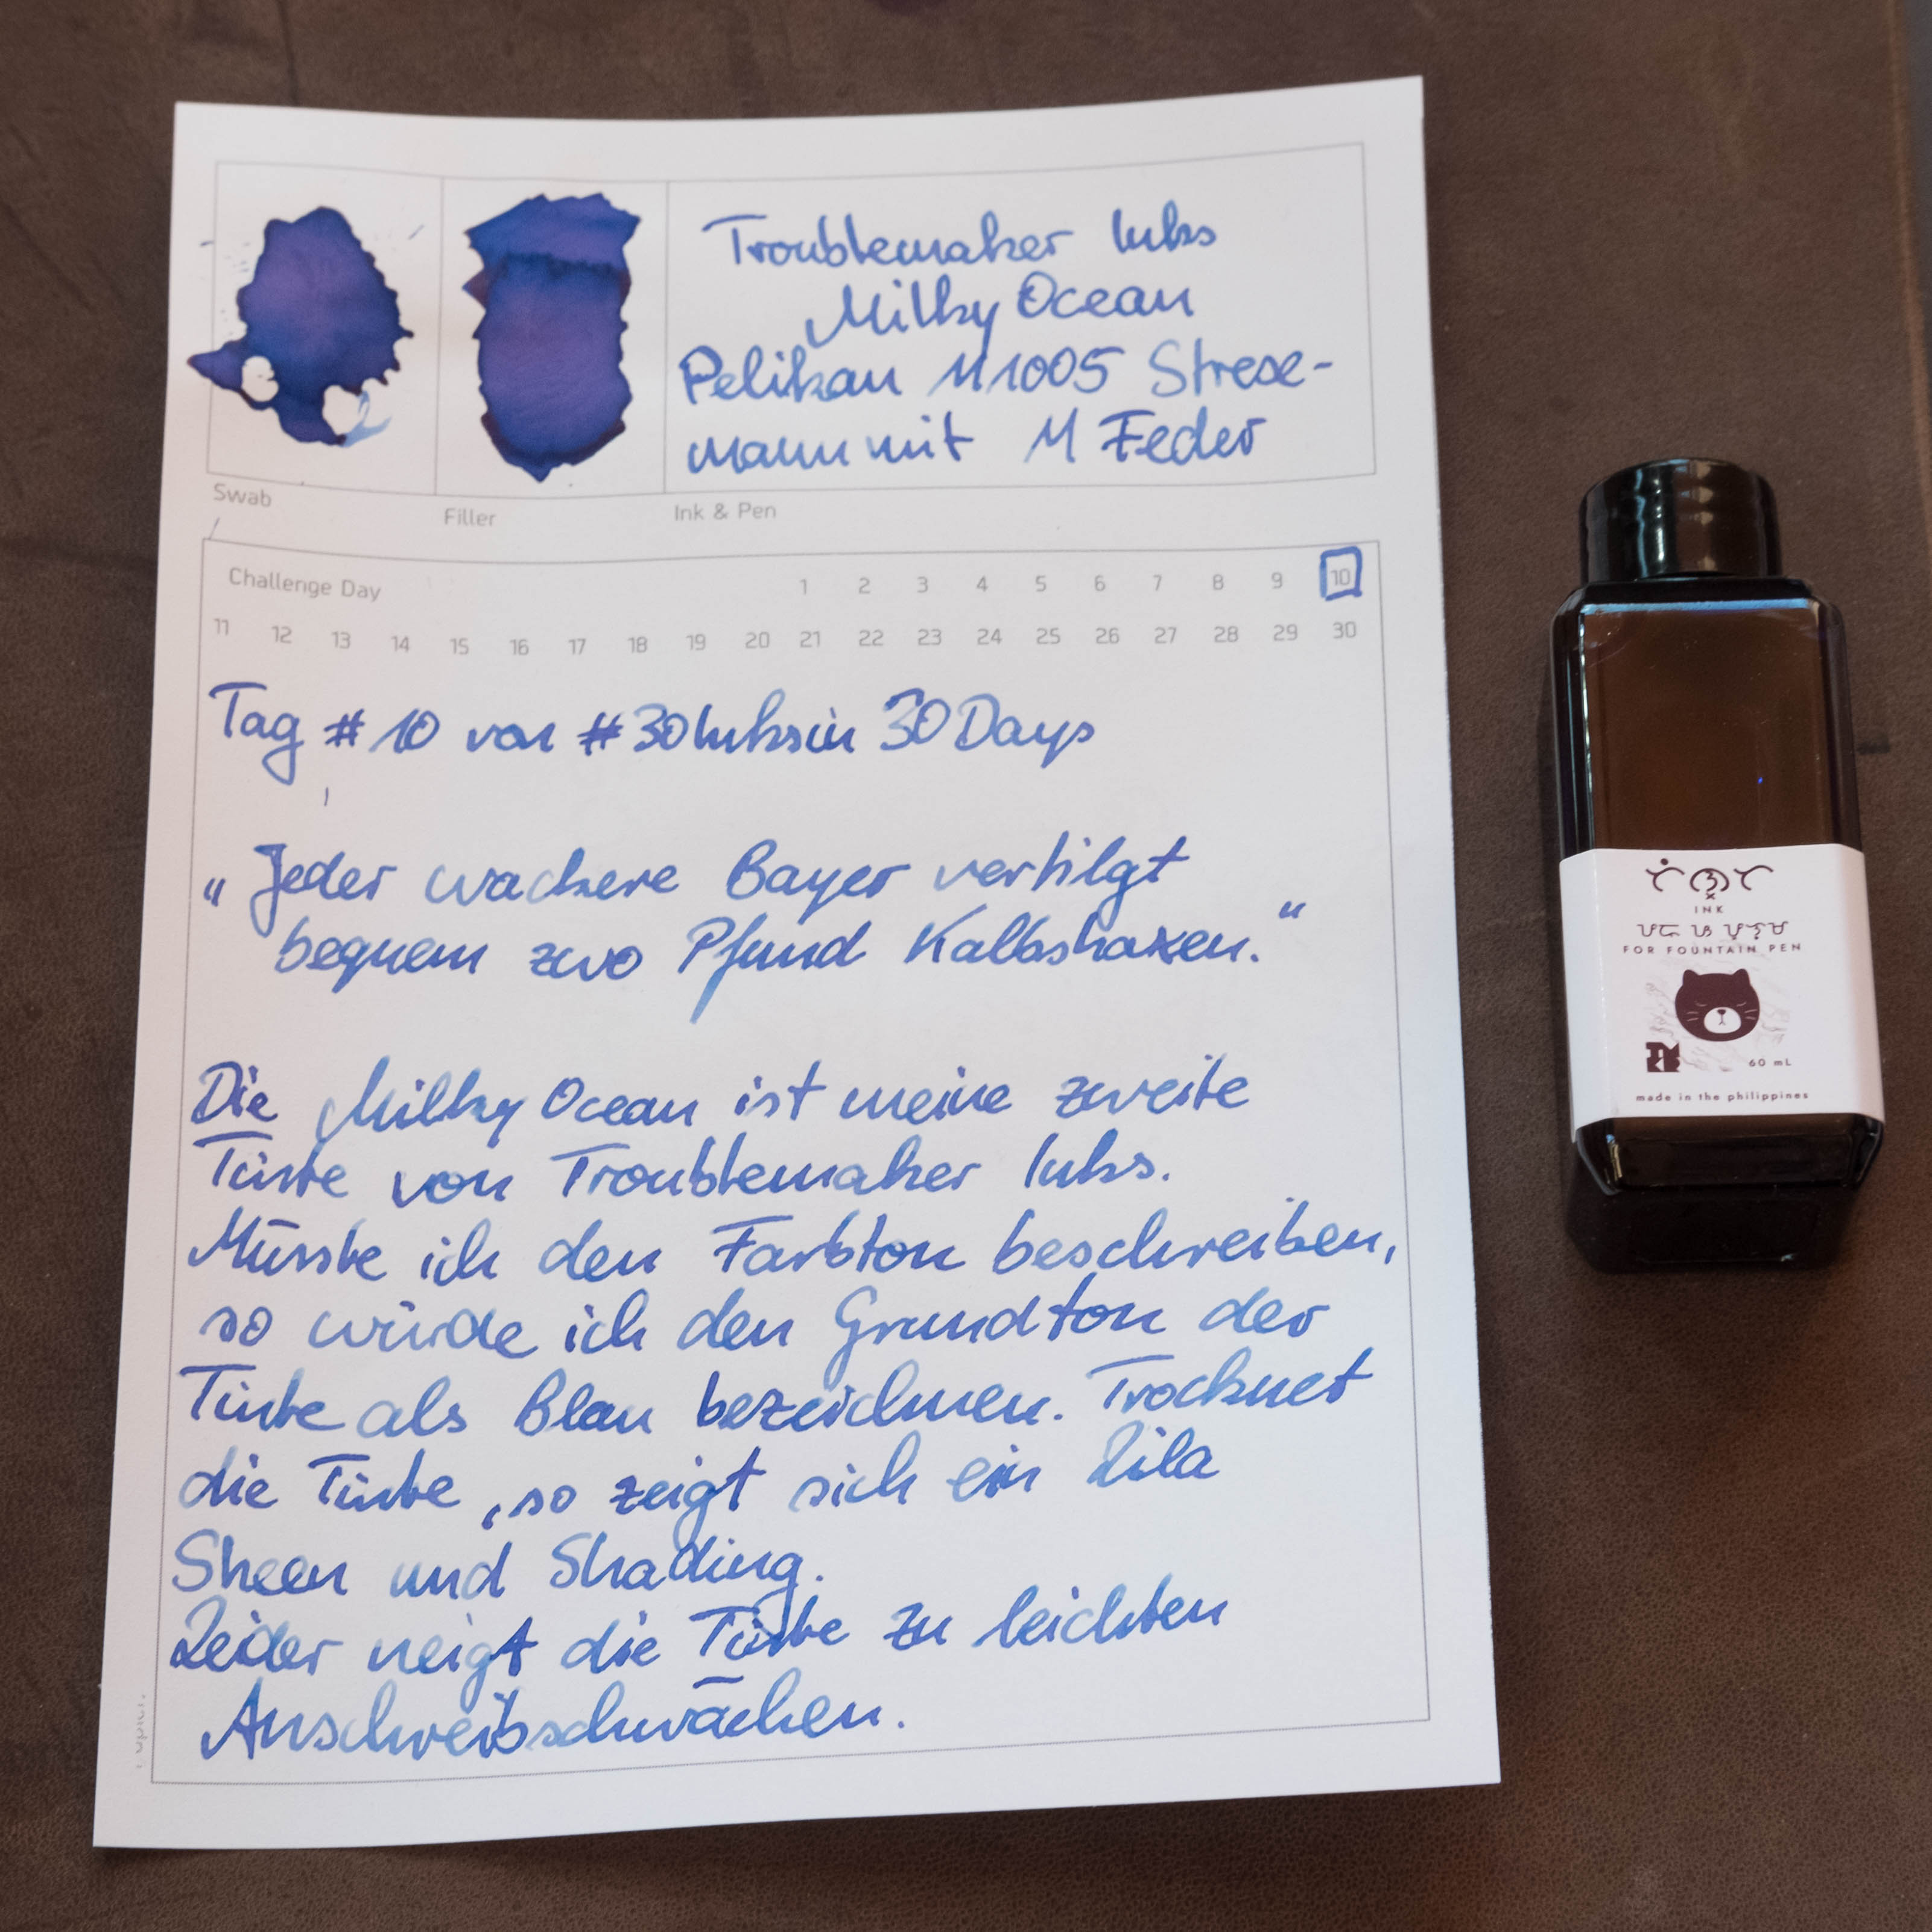 Troublemaker Inks
Milky Ocean
Pelikan M1005 Strese-
mann mit M Feder
Swab
Filler
Ink & Pen
Challenge Day 1 2 3 4 5 6 7 8 9 10
11 12 13 14 15 16 17 18 19 20 21 22 23 24 25 26 27 28 29 30
Tag #10 von #30Inksin30Days
„Jeder wackere Bayer vertilgt
bequem zwo Pfund Kalbshaxen.“
Die Milky Ocean ist meine zweite
Tinte von Troublemaker Inks.
Müsste ich den Farbton beschreiben,
so würde ich den Grundton der
Tinte als Blau bezeichnen. Trocknet
die Tinte, so zeigt sich ein Lila
Sheen und Shading.
Leider neigt die Tinte zu leichten
Anschreibschwächen.
INK
FOR FOUNTAIN PEN
60 mL
made in the philippines